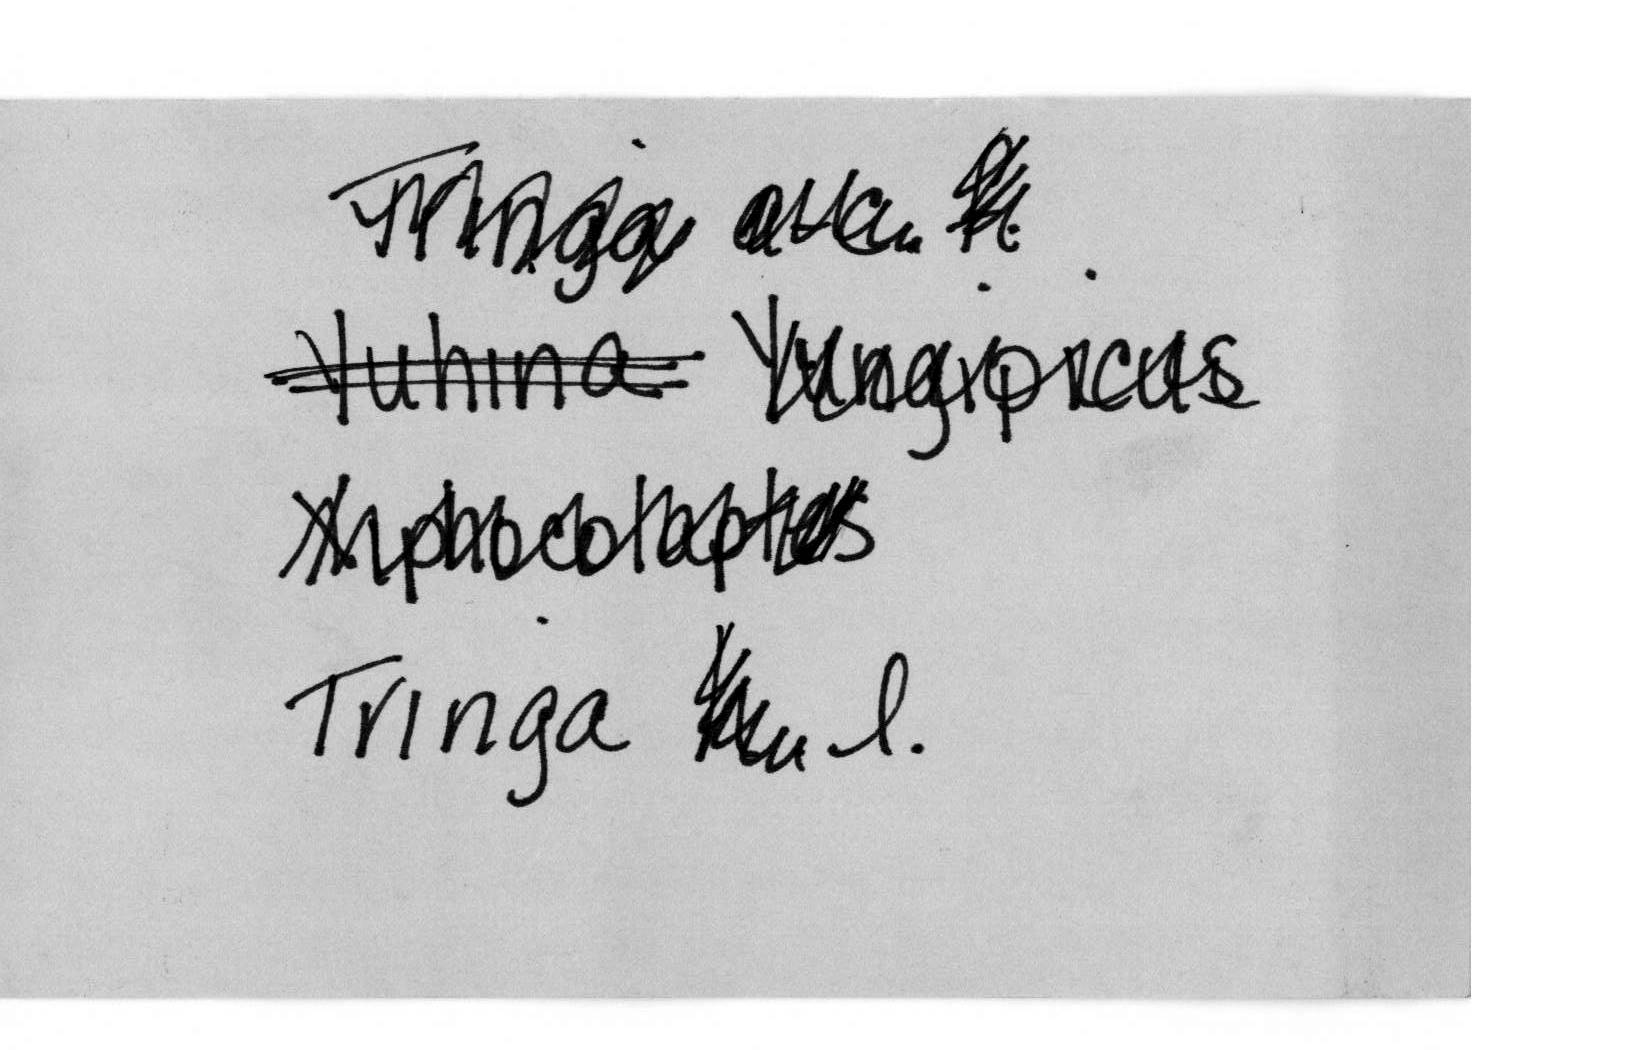 Tringa
Yuhina Yungipicus
Xiphocolaptes
Tringa l.